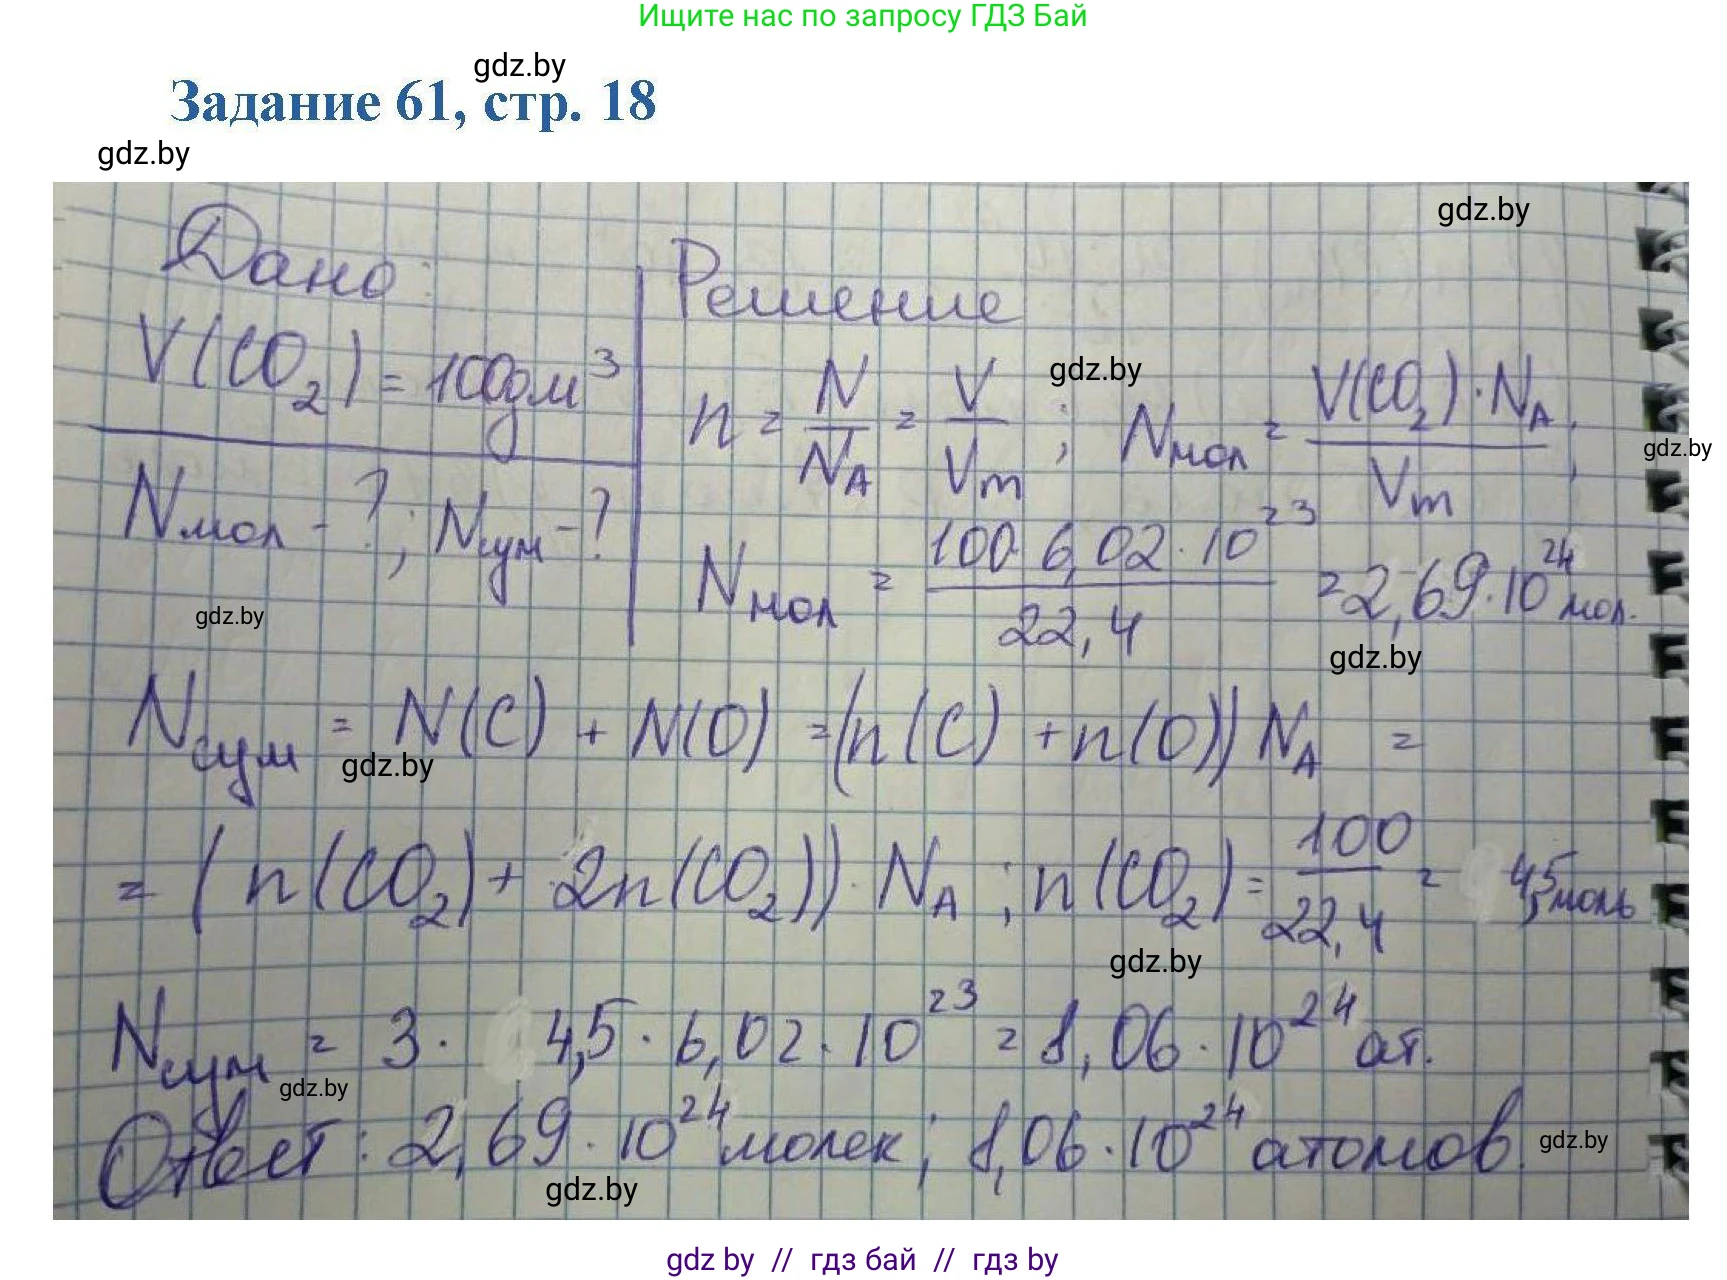 Ищите нас по запросу ГДЗ Бай
gdz.by
Задание 61, стр. 18
gdz.by
gdz.by
Дано:
V(CO₂) = 100дм³
Nмол - ?; Nсум - ?
gdz.by
Решение
n = N/N_A = V/Vm ; Nмол = V(CO₂)·N_A/Vm ;
gdz.by
gdz.by
Nмол = 100·6,02·10²³/22,4 = 2,69·10²⁴ мол.
gdz.by
Nсум = N(C) + N(O) = (n(C) + n(O)) N_A =
gdz.by
= (n(CO₂) + 2n(CO₂))·N_A ; n(CO₂) = 100/22,4 = 4,5 моль
gdz.by
Nсум = 3· 4,5·6,02·10²³ = 8,06·10²⁴ ат.
gdz.by
Ответ: 2,69·10²⁴ молек; 8,06·10²⁴ атомов.
gdz.by
gdz.by
gdz by // гдз бай // гдз by